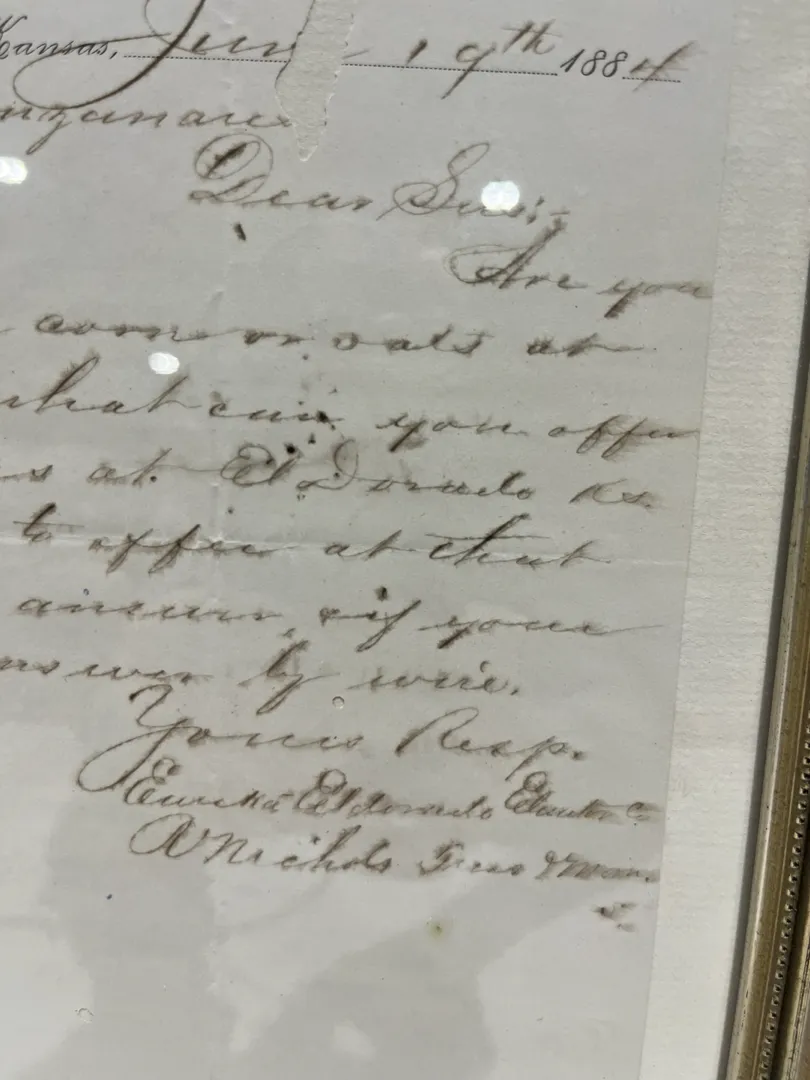 Kansas, June 19th 1884
Dear Sir:-
Are you
corn or oats at
what can you offer
us at El Dorado Ks.
to offer at that
answer, if your
answer by wire.
Yours Resp.
Eureka Eldorado Elevator Co
Nichols Treas